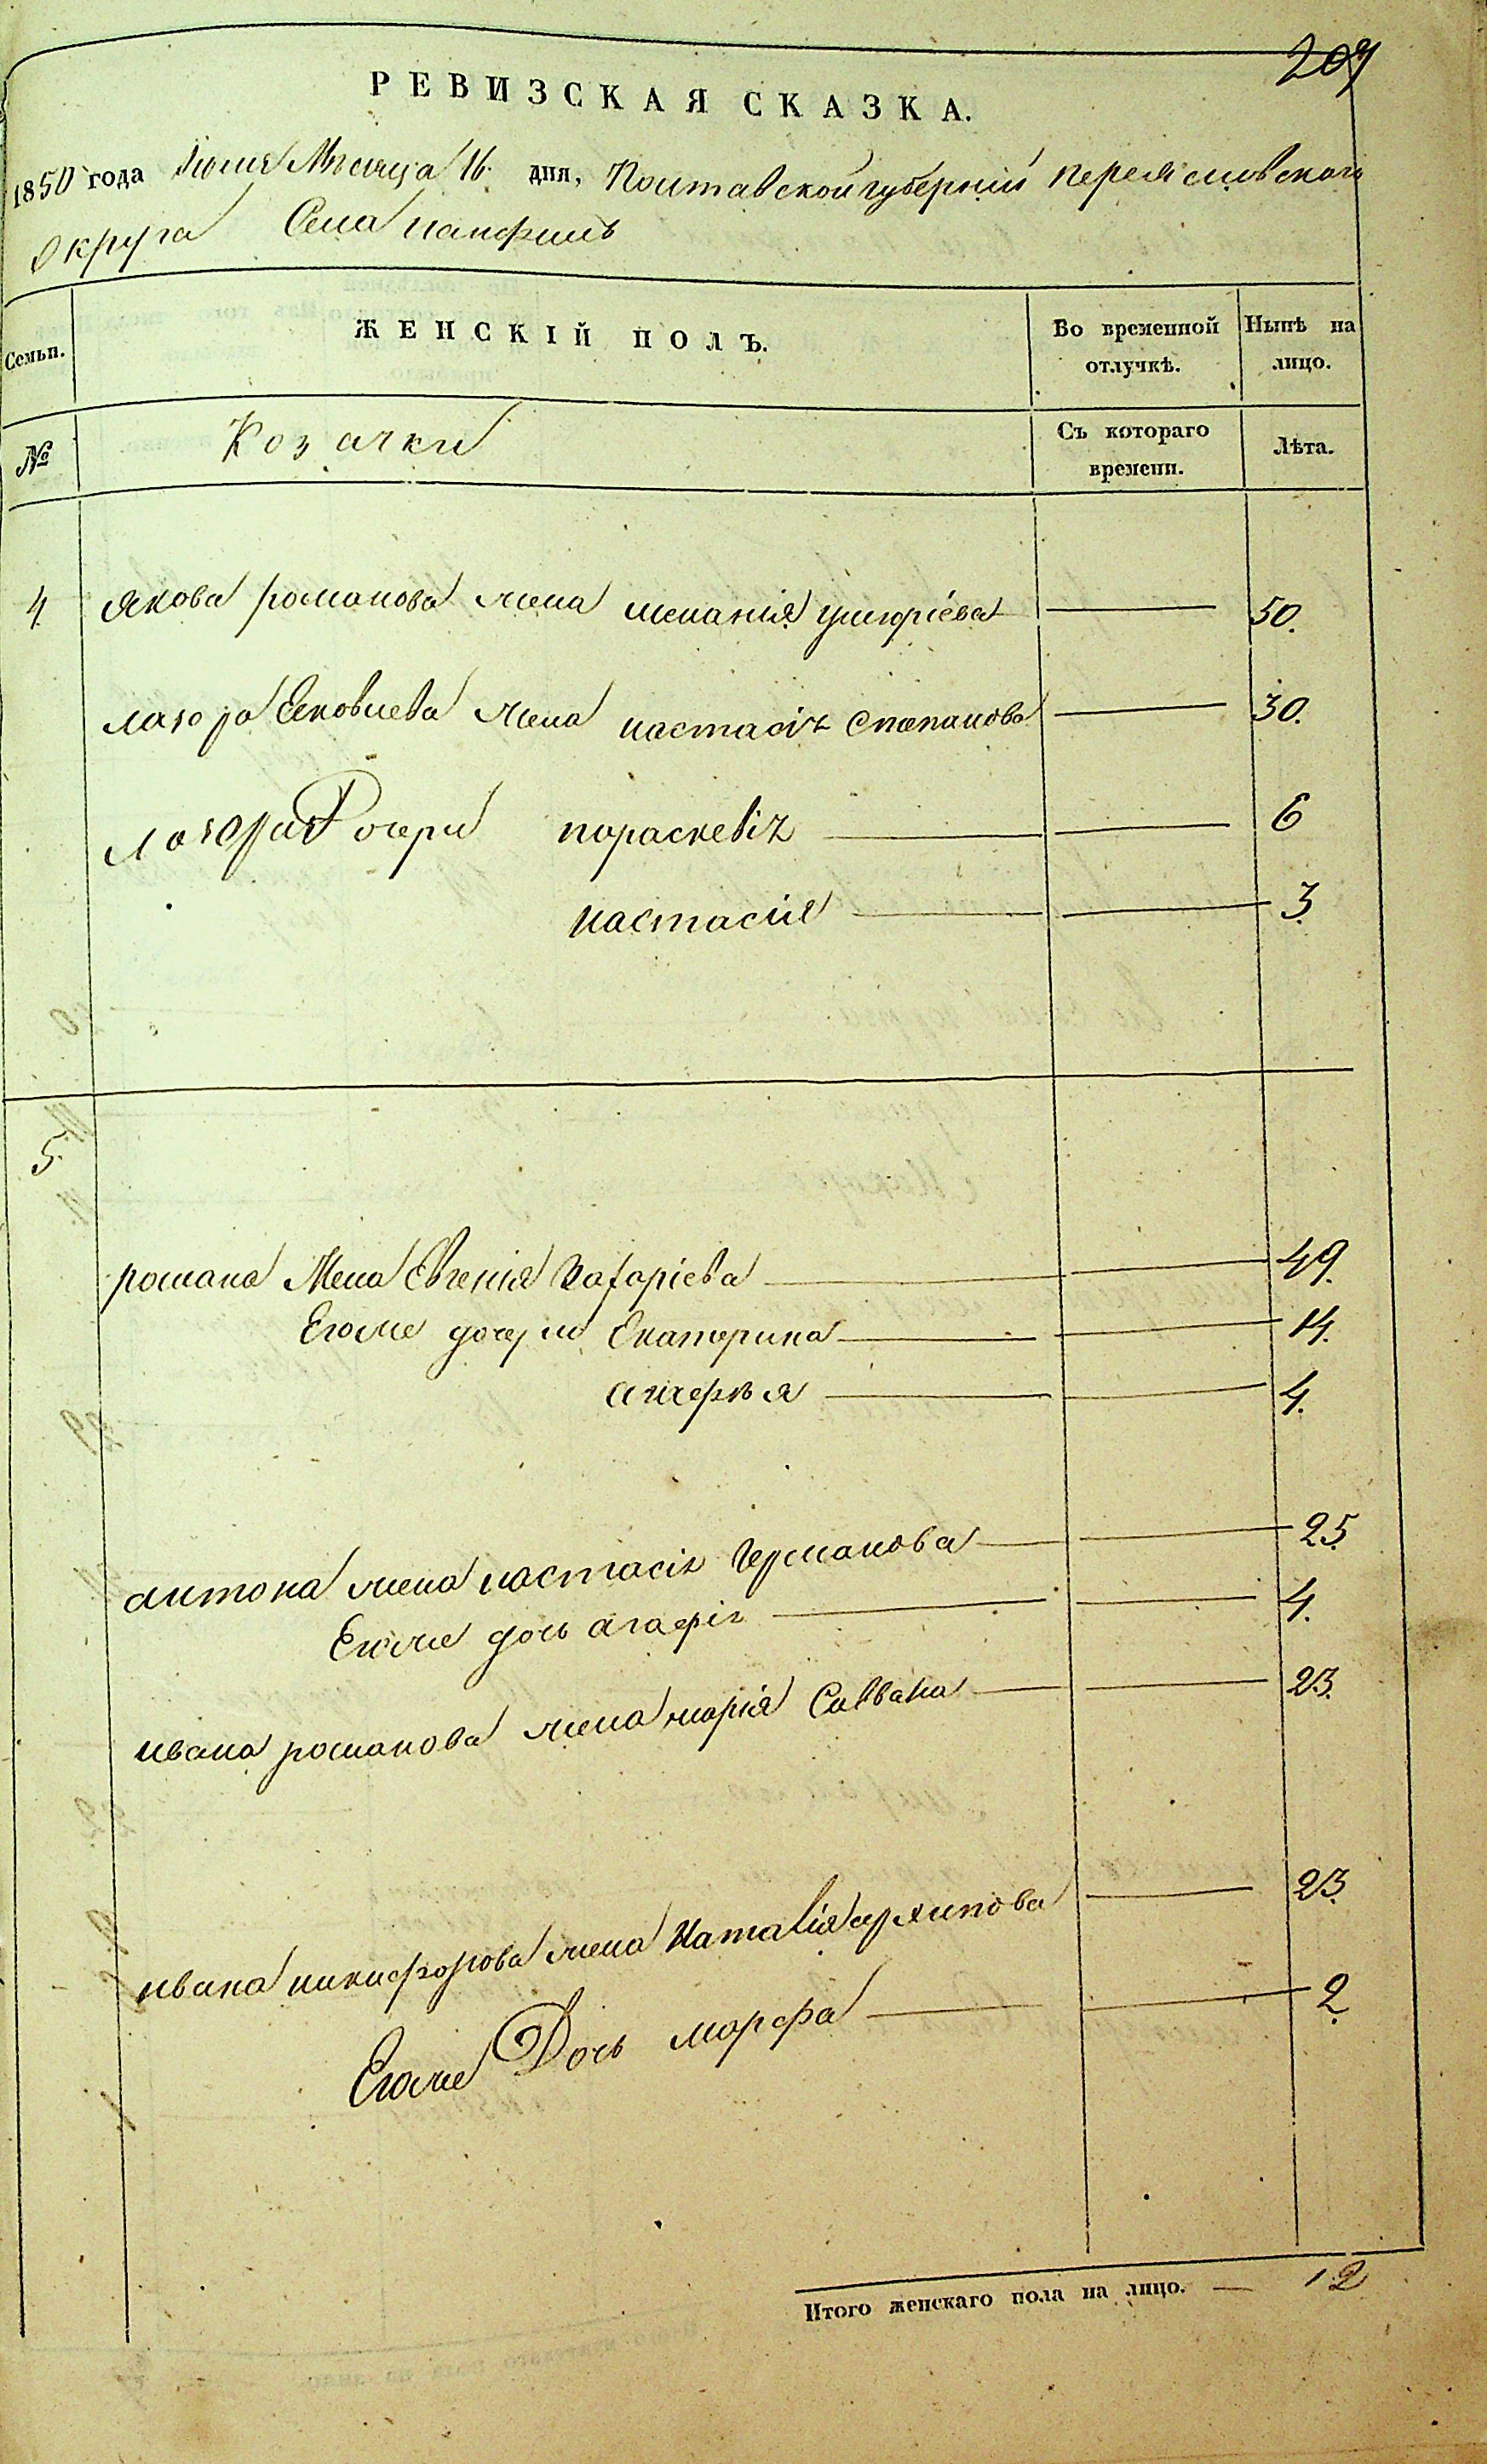 207
РЕВИЗСКАЯ СКАЗКА.
1850 года Июля Месяца 16 дня, Полтавской губернии переясловского
округа Села панфилъ
Семьи. ЖЕНСКІЙ ПОЛЪ. Во временной отлучкѣ. Нынѣ на лицо.
№ Козачки Съ котораго времени. Лѣта.
4 Якова романова жена меланія григоріева 50.
лазора Яковлева жена настасія Степанова 30.
лазоря Дочери параскевія 6
настасия 3.
5.
романа Жена Евгенія Захаріева 49.
Егоже дочери Екатерина 14.
4.
антона жена настасія Германова 25
Егоже дочь агафія 4.
ивана романова жена марія Саввана 23.
ивана никифорова жена Наталія архипова 23.
Егоже Дочь марфа 2.
Итого женскаго пола на лицо. 12